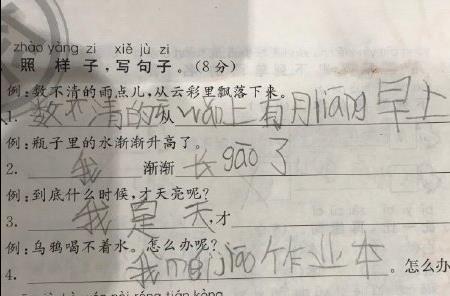 zhào yàng zi xiě jù zi
照样子，写句子。（8分）
例：数不清的雨点儿，从云彩里飘落下来。
1. 数不清的 从 晚上有月liang 早上
例：瓶子里的水渐渐升高了。
2. 我 渐渐 长gāo了
例：到底什么时候，才天亮呢？
3. 我是天，才
例：乌鸦喝不着水。怎么办呢？
4. 我mei jiāo作业本。怎么办